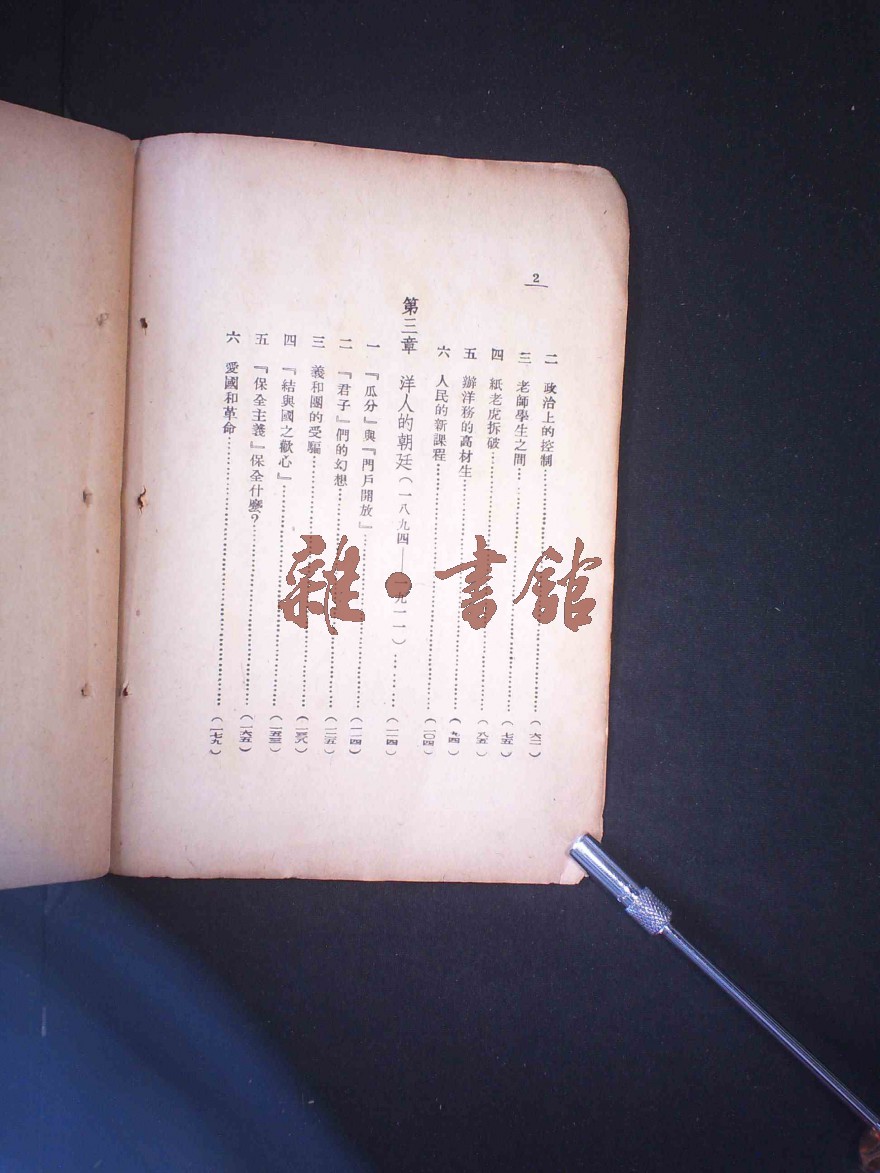 2
二 政治上的控制……(六二)
三 老師學生之間……(七五)
四 紙老虎拆破……(八五)
五 辦洋務的高材生……(九四)
六 人民的新課程……(一〇四)
第三章 洋人的朝廷(一八九四——一九一一)……(一一四)
一 『瓜分』與『門戶開放』……(一一四)
二 『君子』們的幻想……(一二五)
三 義和團的受騙……(一三八)
四 『結與國之歡心』……(一五三)
五 『保全主義』保全什麼?……(一六五)
六 愛國和革命……(一七九)
雜·書館